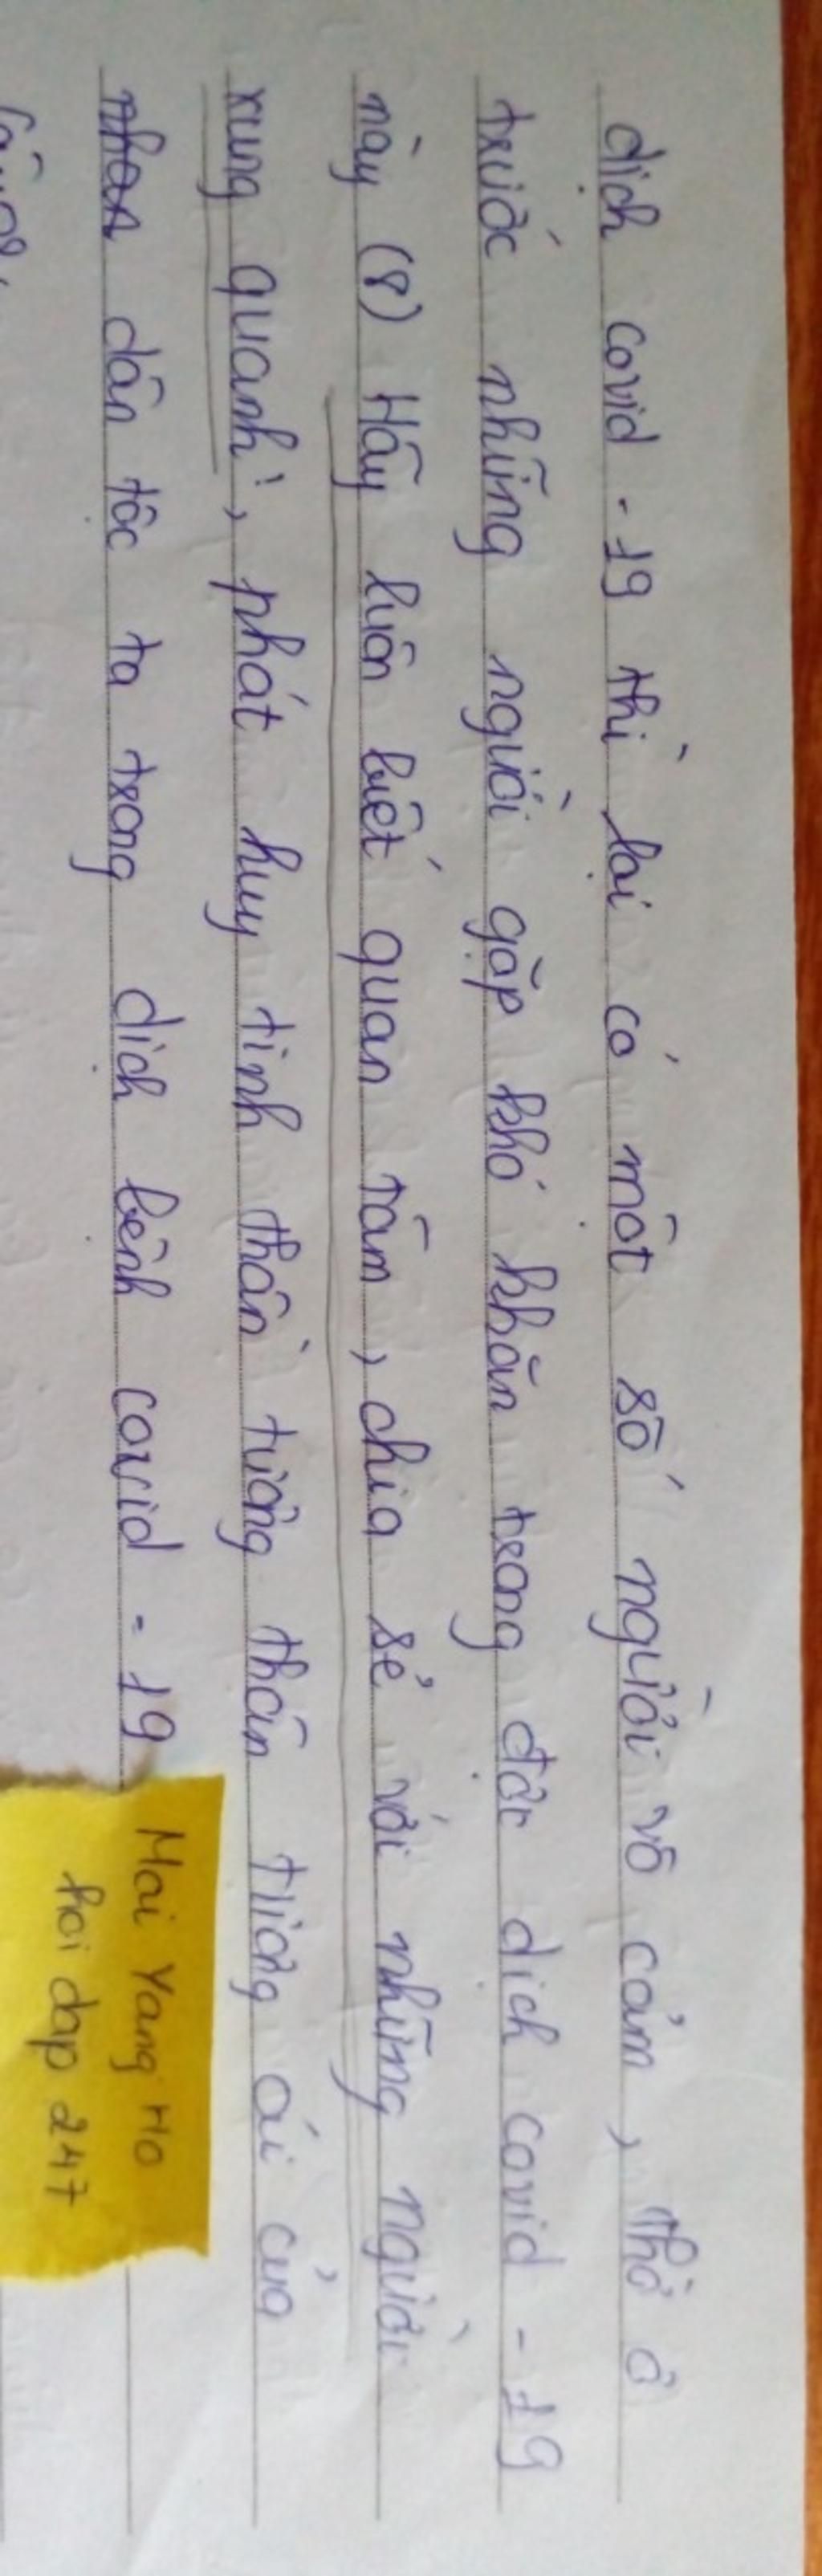 dịch covid - 19 thì lại có một số người vô cảm, thờ ơ
trước những người gặp khó khăn trong đợt dịch covid - 19
này (8) Hãy luôn biết quan tâm, chia sẻ với những người
xung quanh, phát huy tinh thần tương thân tương ái của
dân tộc ta trong dịch bệnh covid - 19
Mai Yang Ho
hoi dap 247